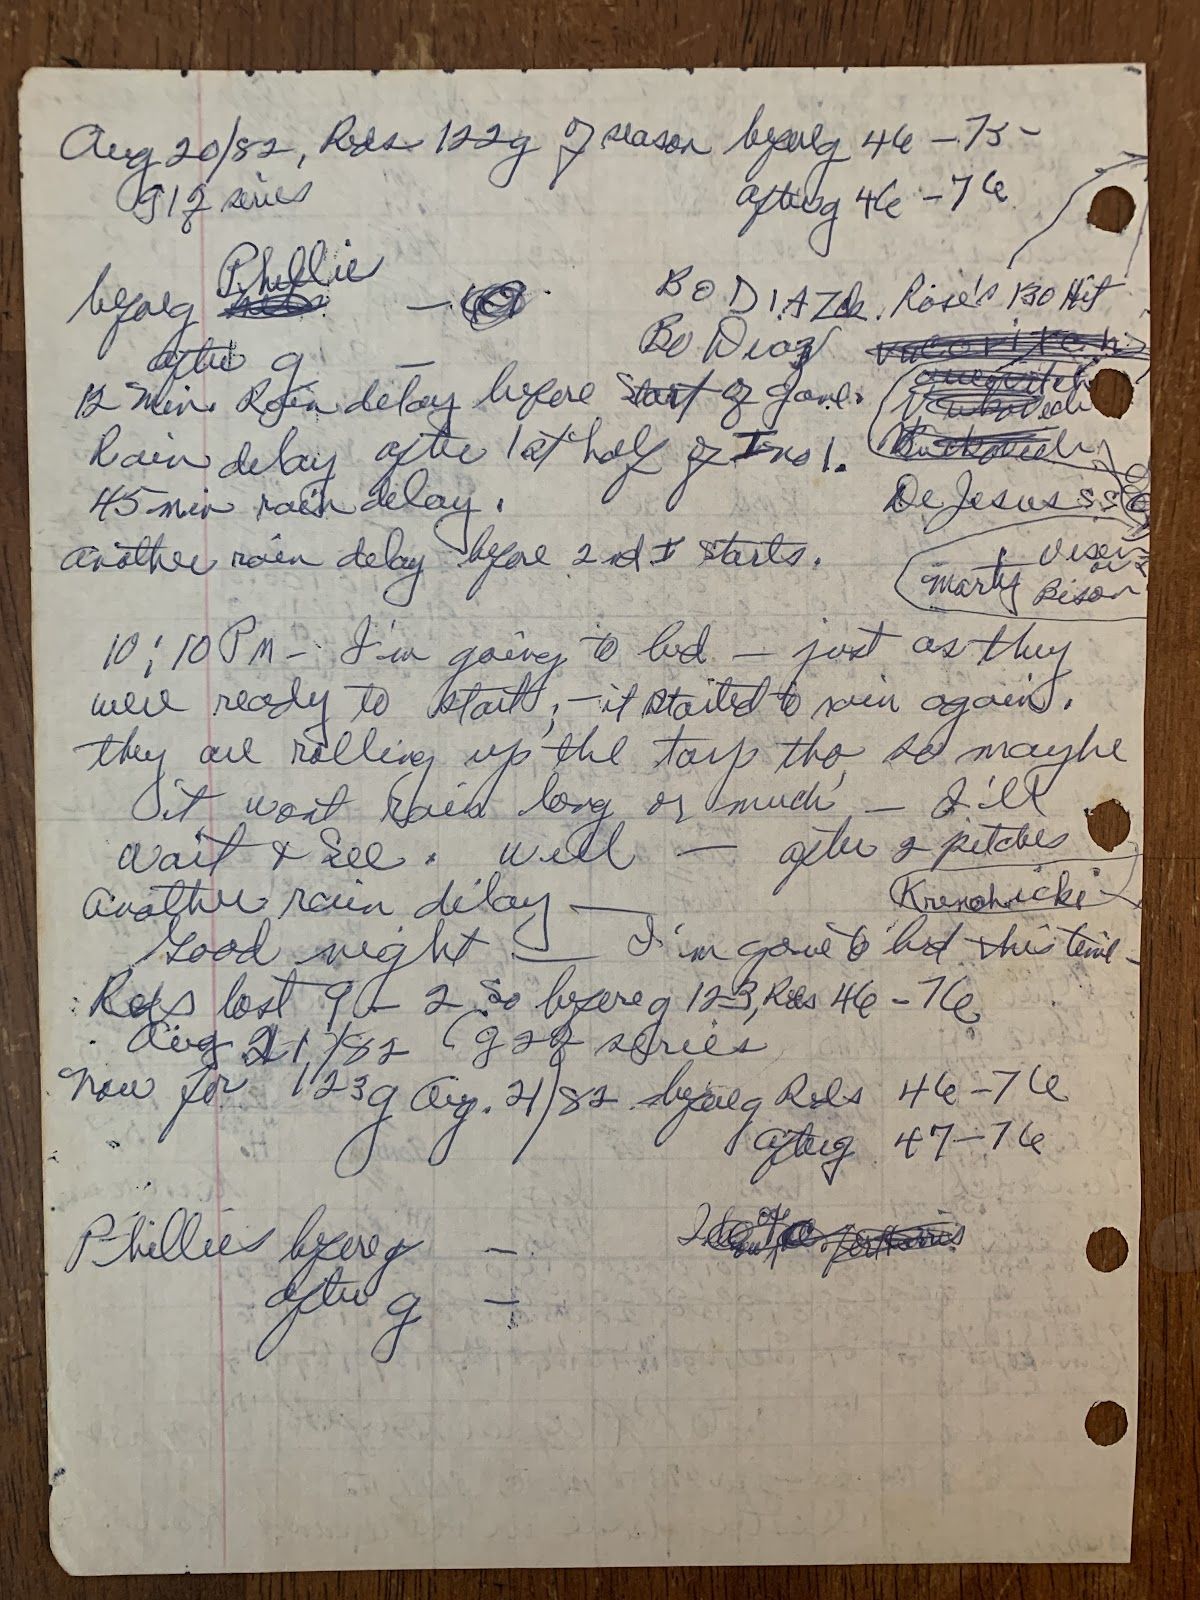 Aug 20/82, Reds 122g of season before g 46 - 75 -
g 1 of series after g 46 - 76
before g Phillie -
Bo DIAZ Rose's 130 Hit
after g - Bo Diaz
12 min. Rain delay before start of game.
Rain delay after 1st half of I no 1.
45 min rain delay. De Jesus SS
another rain delay before 2nd I starts.
Marty Bison
10:10 PM - I'm going to bed - just as they
were ready to start, - it started to rain again.
they are rolling up the tarp tho, so maybe
it wont rain long or much - I'll
wait & see. Well - after 2 pitches
another rain delay - Krenchicki
Good night - I'm gone to bed this time -
Reds lost 9 - 2 so before g 123, Reds 46 - 76
Aug 21/82 (g 2 of series
Now for 123g Aug. 21/82 before g Reds 46 - 76
after g 47 - 76
Phillies before g -
after g -